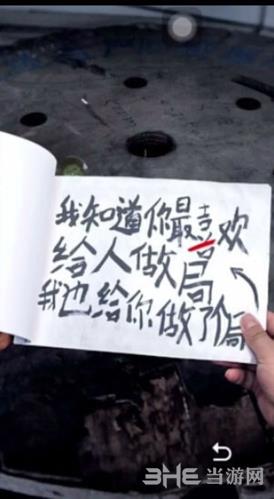 我知道你最喜欢
给人做局
我也给你做了局
3HE 当游网
3h3.com